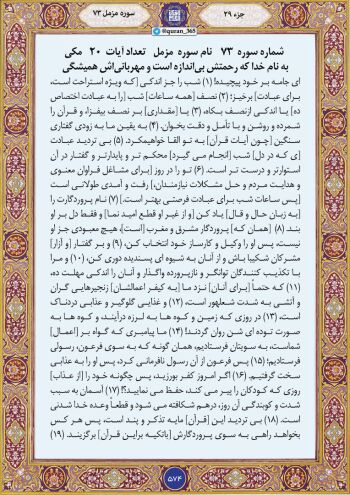 جزء ۲۹
@quran_365
سوره مزمل ۷۳
شماره سوره ۷۳ نام سوره مزمل تعداد آیات ۲۰ مکی
به نام خدا که رحمتش بی‌اندازه است و مهربانی‌اش همیشگی
ای جامه بر خود پیچیده! (۱) شب را جز اندکی [که ویژه استراحت است،
برای عبادت] برخیز؛ (۲) نصف [همه ساعات] شب [را به عبادت اختصاص
ده] یا اندکی از نصف بکاه، (۳) یا [مقداری] بر نصف بیفزا، و قرآن را
شمرده و روشن و با تأمل و دقت بخوان. (۴) به یقین ما به زودی گفتاری
سنگین [چون آیات قرآن] به تو القا خواهیم کرد. (۵) بی تردید عبادت
[ی که در دل] شب [انجام می گیرد] محکم تر و پایدارتر و گفتار در آن
استوارتر و درست تر است. (۶) تو را در روز [برای مشاغل فراوان معنوی
و هدایت مردم و حل مشکلات نیازمندان،] رفت و آمدی طولانی است
[پس ساعات شب برای عبادت فرصتی بهتر است.] (۷) نام پروردگارت را
[به زبان حال و قال] یاد کن [و از غیر او قطع امید نما] و فقط دل بر او
بند. (۸) [همان که] پروردگار مشرق و مغرب [است]، هیچ معبودی جز او
نیست، پس او را وکیل و کارساز خود انتخاب کن، (۹) و بر گفتار [و آزار]
مشرکان شکیبا باش و از آنان به شیوه ای پسندیده دوری کن، (۱۰) و مرا
با تکذیب کنندگان توانگر و نازپرورده واگذار و آنان را اندکی مهلت ده،
(۱۱) که حتماً [برای آنان] نزد ما [به کیفر اعمالشان] زنجیرهایی گران
و آتشی به شدت شعله‌ور است، (۱۲) و غذایی گلوگیر و عذابی دردناک
است، (۱۳) در روزی که زمین و کوه ها به لرزه درآیند، و کوه ها به
صورت توده ای شن روان گردند! (۱۴) ما پیامبری که گواه بر [اعمال]
شماست، به سویتان فرستادیم، همان گونه که به سوی فرعون، رسولی
فرستادیم؛ (۱۵) پس فرعون از آن رسول نافرمانی کرد، پس او را به عذابی
سخت گرفتیم. (۱۶) اگر امروز کفر بورزید، پس چگونه خود را [از عذاب]
روزی که کودکان را پیر می کند، حفظ می نمایید؟! (۱۷) آسمان به سبب
شدت و کوبندگی آن روز، درهم شکافته می شود و قطعاً وعده خدا شدنی
است. (۱۸) بی تردید این [قرآن] مایه تذکر و پند است، پس هر کس
بخواهد راهی به سوی پروردگارش [با تکیه بر این قرآن] برگزیند. (۱۹)
۵۷۴